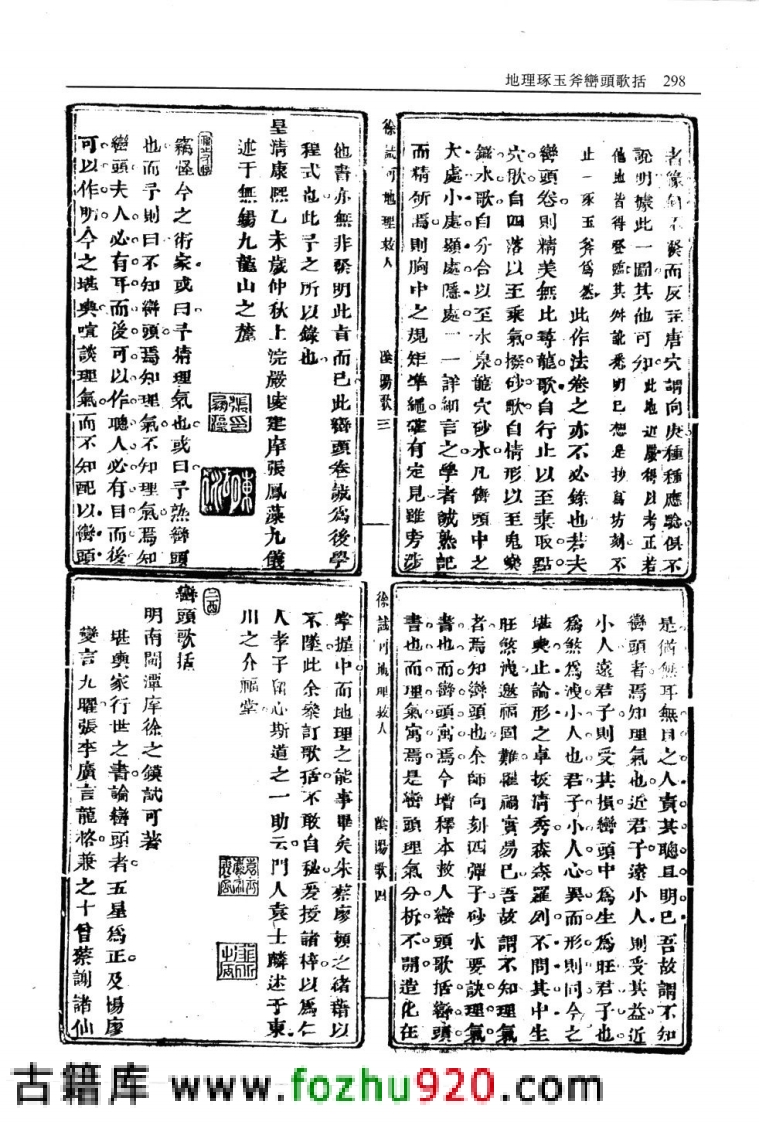 地理琢玉斧巒頭歌括 298
而反詆唐穴謂向庚種種應驗俱不
說明據此一圖其他可知此地近嚴得以考正若
他地皆得登臨其舛訛悉明已想是抄寫坊刻不
止一琢玉斧爲然此作法卷之亦不必錄也若夫
巒頭卷則精美無比尋龍歌自行止以至乘取點
穴歌自四落以至乘氣撥砂歌自情形以至鬼樂
水歌自分合以至水泉龍穴砂水凡巒頭中之
大處小處顯處隱處一一詳細言之學者誠熟記
而精研焉則胸中之規矩準繩確有定見雖旁涉
徐試可地理救人
陰陽歌三
他書亦無非發明此旨而已此巒頭卷誠爲後學
程式也此予之所以錄也
皇淸康熙乙未歲仲秋上浣嚴陵建庠張鳳藻九儀
述于無錫九龍山之麓
竊怪今之術家或曰予精理氣也或曰予熟巒頭
也而予則曰不知巒頭焉知理氣不知理氣焉知
巒頭夫人必有耳而後可以作聰人必有目而後
可以作明今之堪輿喧談理氣而不知配以巒頭
是猶無耳無目之人責其聰且明已吾故謂不知
巒頭者焉知理氣也近君子遠小人則受其益近
小人遠君子則受其損巒頭中爲生爲旺君子也
爲煞爲洩小人也君子小人心異而形則同今之
堪輿止論形之卓拔淸秀森森羅列不問其中生
旺煞洩邀福固難罹禍實易已吾故謂不知理氣
者焉知巒頭也余師向刻四彈子砂水要訣理氣
書也而巒頭寓焉今增釋本救人巒頭歌括巒頭
書也而理氣寓焉是巒頭理氣分析不開造化在
徐試可地理救人
陰陽歌四
掌握中而地理之能事畢矣朱蔡廖賴之緒藉以
不墜此余參訂歌括不敢自秘爰授諸梓以爲仁
人孝子留心斯道之一助云門人袁士麟述于東
川之介福堂
巒頭歌括
明南閩潭庠徐之鏌試可著
堪輿家行世之書論巒頭者五星爲正及楊廖
變言九曜張李廣言龍格兼之十曾蔡謝諸仙
古籍库 www.fozhu920.com